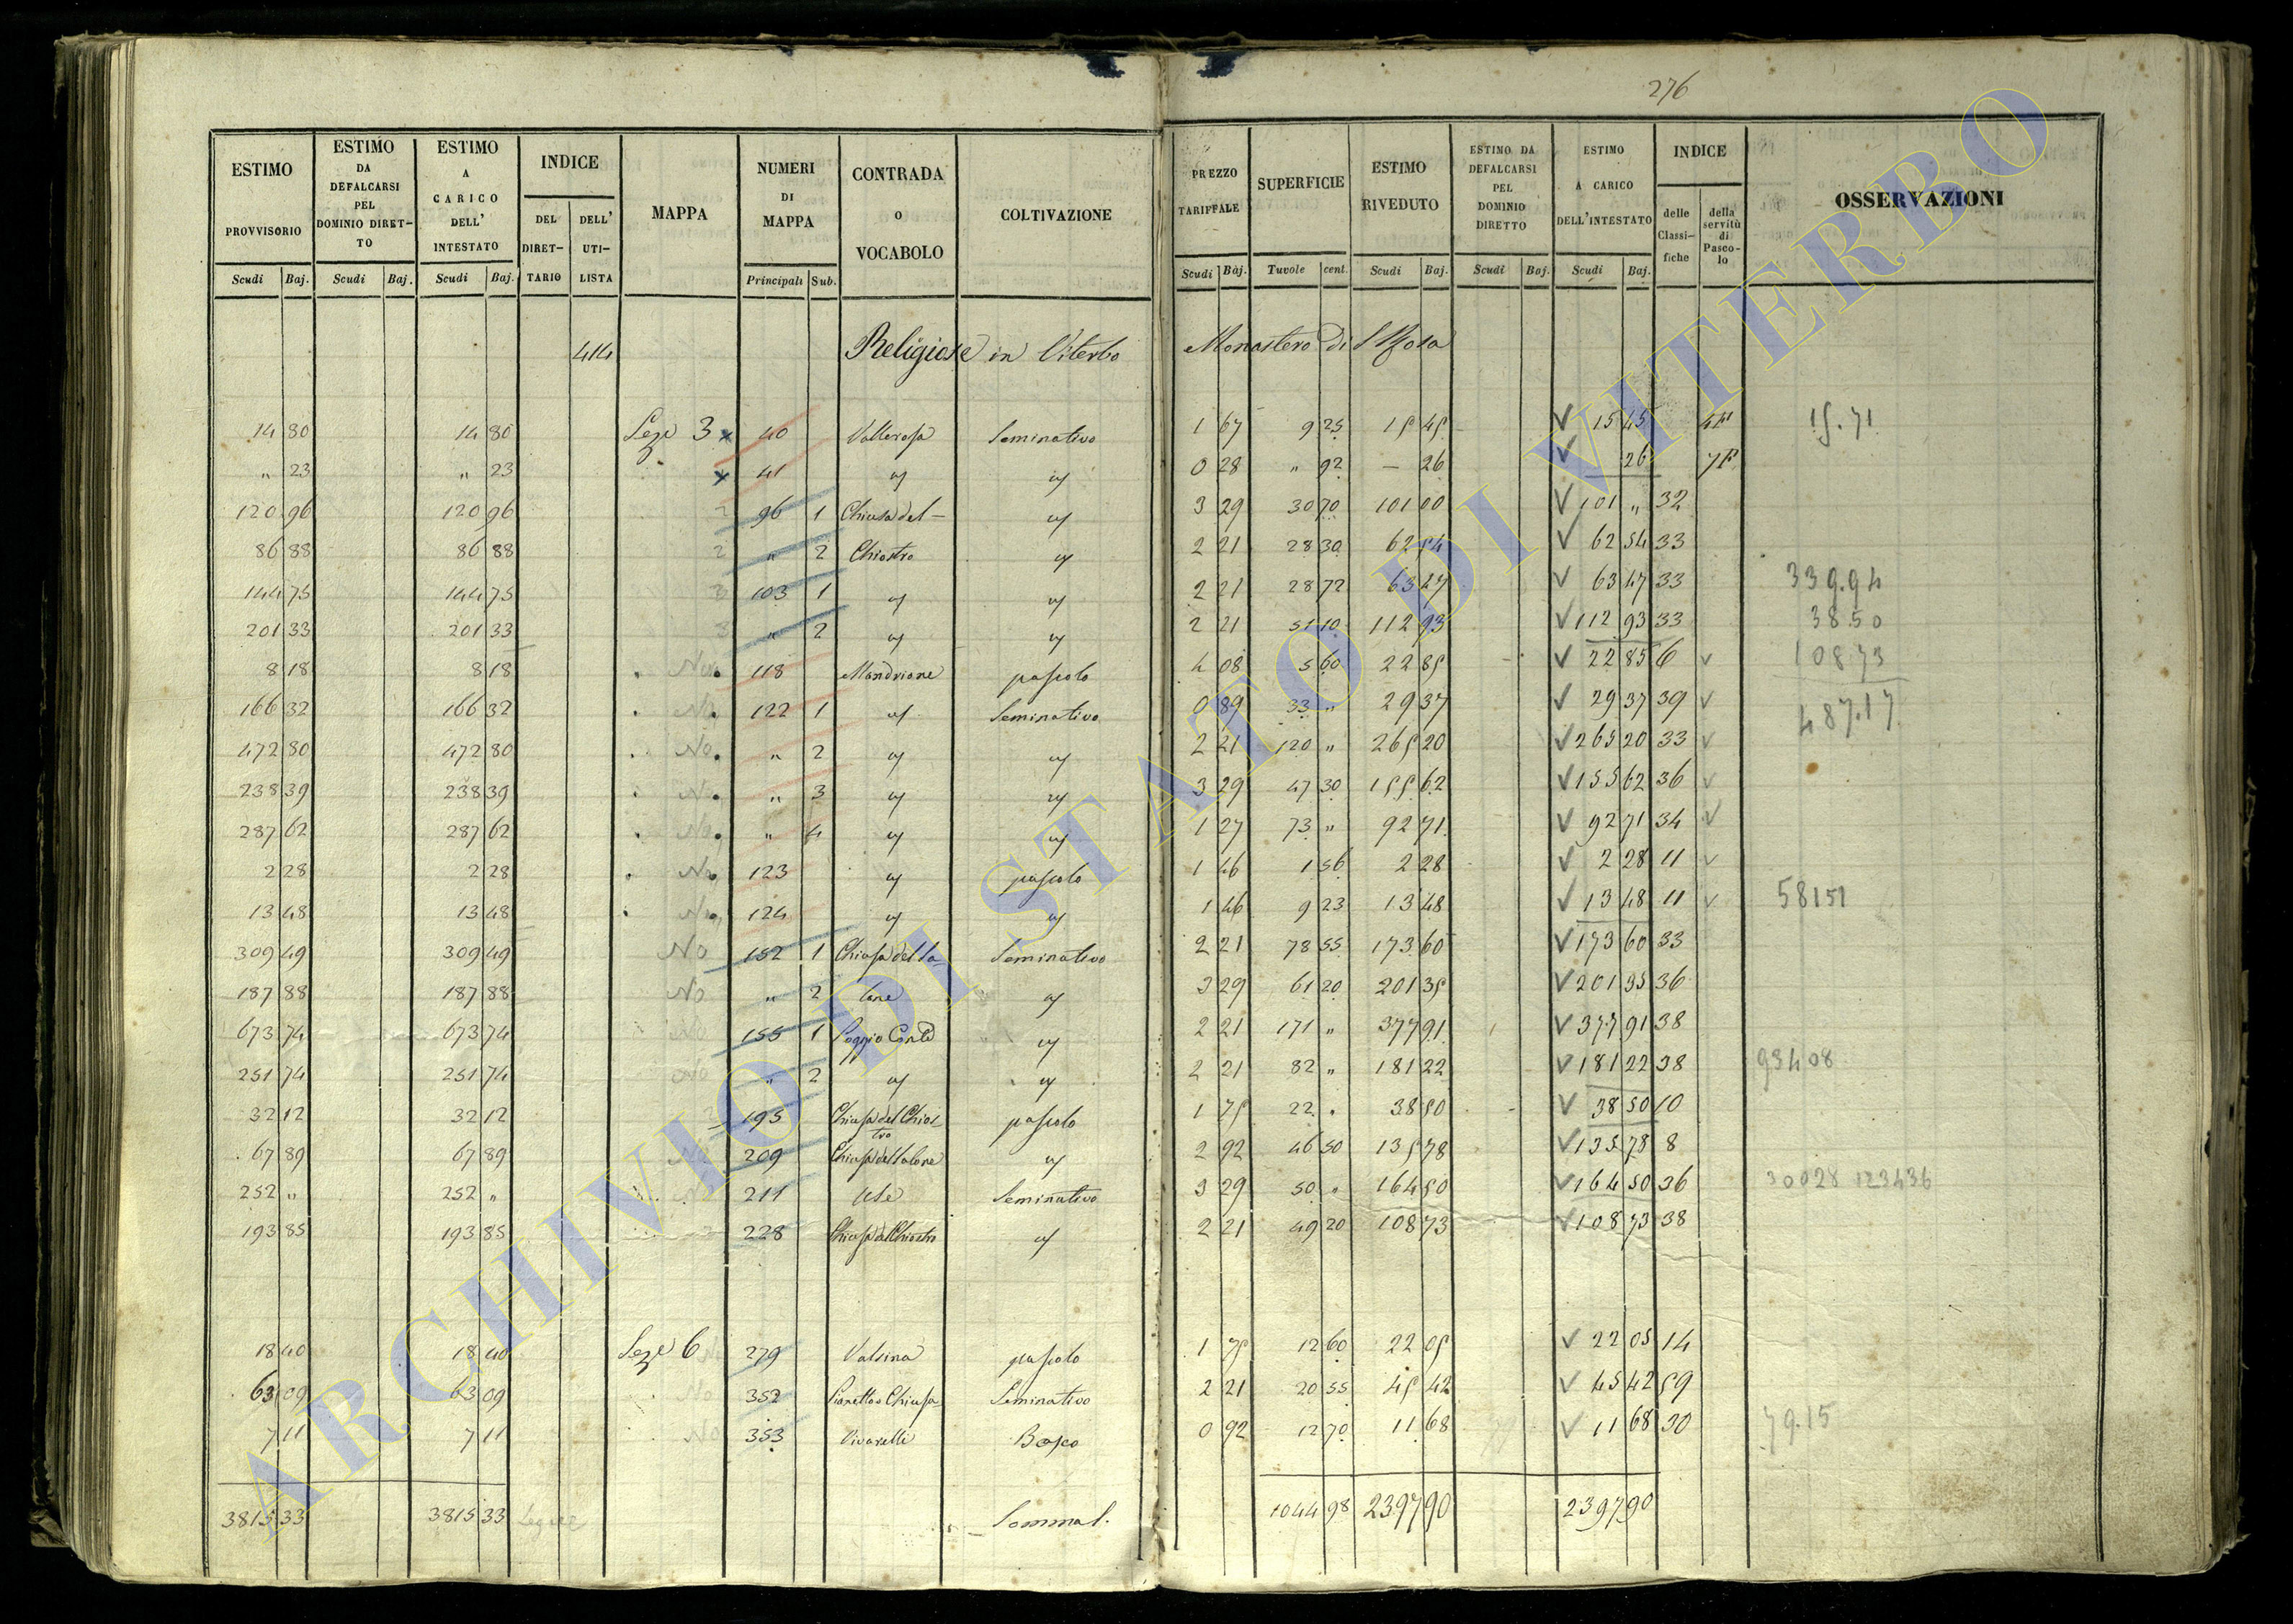 276
ESTIMO PROVVISORIO Scudi Baj. ESTIMO DA DEFALCARSI PEL DOMINIO DIRET-TO Scudi Baj. ESTIMO A CARICO DELL' INTESTATO Scudi Baj. INDICE DEL DIRET-TARIO DELL' UTI-LISTA MAPPA NUMERI DI MAPPA Principali Sub. CONTRADA O VOCABOLO COLTIVAZIONE PREZZO TARIFFALE Scudi Baj. SUPERFICIE Tavole cent. ESTIMO RIVEDUTO Scudi Baj. ESTIMO DA DEFALCARSI PEL DOMINIO DIRETTO Scudi Baj. ESTIMO A CARICO DELL'INTESTATO Scudi Baj. INDICE delle Classi-fiche della servitù di Pasco-lo OSSERVAZIONI
414 Religiose in Viterbo Monastero di S Rosa
14 80 14 80 Seze 3 x 40 Vallerosa Seminativo 1 67 9 25 15 45 V 15 45 4F 15.71
" 23 " 23 x 41 " " 0 28 " 92 – 26 V 26 7F
120 96 120 96 2 96 1 Chiusa del– " 3 29 30 70 101 00 V 101 " 32
86 88 86 88 2 " 2 Chiostro " 2 21 28 30 62 54 V 62 54 33
144 75 144 75 3 103 1 " " 2 21 28 72 63 47 V 63 47 33 339.94
201 33 201 33 3 " 2 " " 2 21 51 10 112 93 V 112 93 33 38.50
8 18 8 18 No. 118 Mandrione pascolo 4 08 5 60 22 85 V 22 85 6 V 108 73
166 32 166 32 No. 122 1 " Seminativo 0 89 33 " 29 37 V 29 37 39 V 487.17
472 80 472 80 No. " 2 " " 2 21 120 " 265 20 V 265 20 33 V
238 39 238 39 No. " 3 " " 3 29 47 30 155 62 V 155 62 36 V
287 62 287 62 No. " 4 " " 1 27 73 " 92 71 V 92 71 34 V
2 28 2 28 No. 123 " pascolo 1 46 1 56 2 28 V 2 28 11 V
13 48 13 48 No. 124 " " 1 46 9 23 13 48 V 13 48 11 V 581 51
309 49 309 49 No 152 1 Chiusa del Sa- Seminativo 2 21 78 55 173 60 V 173 60 33
187 88 187 88 No " 2 lone " 3 29 61 20 201 35 V 201 35 36
673 74 673 74 No 155 1 Poggio Conte " 2 21 171 " 377 91 V 377 91 38
251 74 251 74 No " 2 " " 2 21 82 " 181 22 V 181 22 38 934 08
32 12 32 12 2 195 Chiusa del Chios-tro pascolo 1 75 22 " 38 50 V 38 50 10
67 89 67 89 No 209 Chiusa del Salone " 2 92 46 50 135 78 V 135 78 8
252 " 252 " 211 Use Seminativo 3 29 50 " 164 50 V 164 50 36 300 28 1234 36
193 85 193 85 2 228 Chiusa del Chiostro " 2 21 49 20 108 73 V 108 73 38
18 40 18 40 Seze 6 No 279 Valsina pascolo 1 75 12 60 22 05 V 22 05 14
63 09 63 09 No 352 Pianetto o Chiusa Seminativo 2 21 20 55 45 42 V 45 42 59
7 11 7 11 No 353 Vivarelle Bosco 0 92 12 70 11 68 V 11 68 30 79.15
3815 33 3815 33 Sommal. 1044 98 2397 90 2397 90
ARCHIVIO DI STATO DI VITERBO